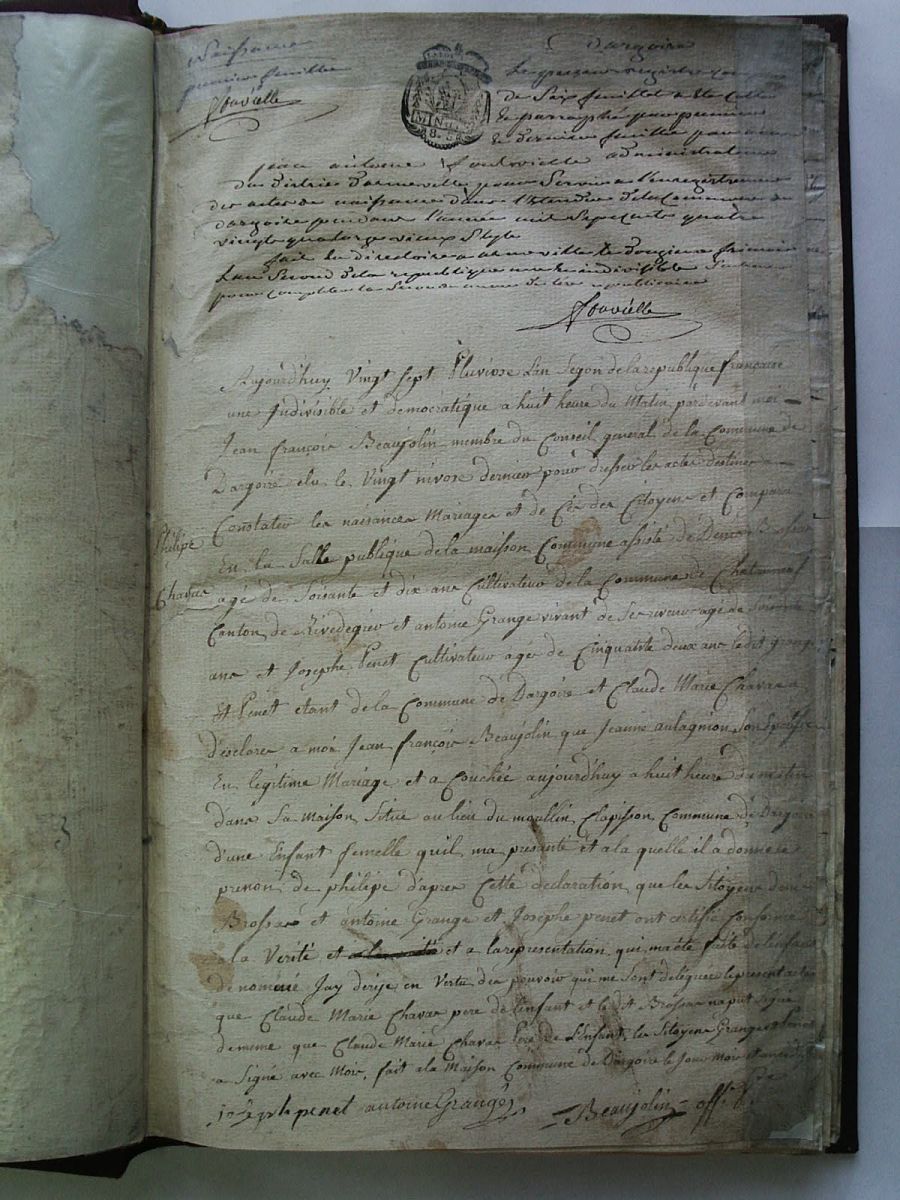 Naissance
première feuille
Fouvielle
Dargoire
Le present registre
de Six feuillet a Ete Cotté
& parraphé par premier
& dernier feuille par nous
jean antoine Fouvielle administrateur
du district d'armeville pour Servir a l'enregistrement
des actes de naissance dans l'Etendue de la Commune de
dargoire pendant l'année mil Sept Cents quatre
vingt quatorze vieux Style
fait en directoire a armeville le douzieme frimaire
L'an Second de la republique une & indivisible
pour Completter la Seconde année de l'ère republicaine
Fouvielle
Aujourd'huy Vingt Sept Pluviose L'an Segon de la republique française
une Indivisible et democratique a huit heure du Matin pardevant moi
Jean françois Beaujolin membre du Conseil general de la Commune de
Dargoire elu le Vingt nivose dernier pour dresser les actes destines a
Constater les naisances Mariages et de Cés des Citoyens et Compara
Philipe
En la Salle publique de la maison Commune assisté de
Chavas
age de Soisante et dix ans Cultivateur de la Commune de
Canton de Rivedegier et antoine Grange vivant de Ses revenus agé de
ans et Josephe Penet Cultivateur ager de Cinquante deux ans ledit grange
Et Penet etant de la Commune de Dargoire et Claude Marie Chavas a
d'esclarer a moi Jean françois Beaujolin que Jeanne aulagnion Son Epouse
En légitime Mariage et a Couchée aujourd'huy a huit heure du matin
dans Sa maison Situé au lieu du moullin Clapisson Commune de Dargoire
d'une Enfant femelle quil ma presanté et a la quelle il a donné le
prenon de philipe d'apres Cette declaration que les Sitoyens
Brossar et antoine Grange et Josephe penet ont certifié Conforme
a la Verité et et a la representation qui ma eté faite de l'enfant
denommé Jay derijé en Vertu des pouvoir qui me Sont delegues le present acte
que Claude Marie Chavas pere de l'enfant et le dit Brossar na put Signé
de meme que Claude Marie Chavas Pere de L'enfant, les Sitoyens Grange et Penet
a Signé avec Moi, fait a la Maison Commune de Dargoire le Jour Mois et an
penet antoine Grange Beaujolin off. p.